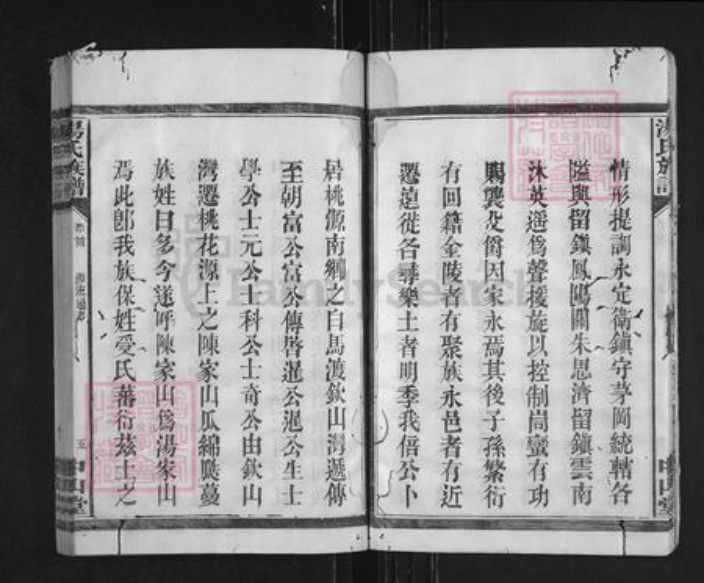 湯氏族譜
情形提調永定衛鎮守茅岡統轄各
隘與留鎮鳳陽關朱恩濟留鎮雲南
沐英遥爲聲援旋以控制峝蠻有功
賜襲父爵因家永焉其後子孫繁衍
有回籍金陵者有聚族永邑者有近
遷遠徙各尋樂土者明季我信公卜
居桃源南鄉之白馬渡欽山灣遞傳
至朝富公富公傳啓暹公暹公生士
學公士元公士科公士奇公由欽山
灣遷桃花源上之陳家山瓜綿瓞蔓
族姓日多今遂呼陳家山爲湯家山
焉此卽我族保姓受氏蕃衍茲土之
湯氏族譜
卷首
五
中山堂
FamilySearch